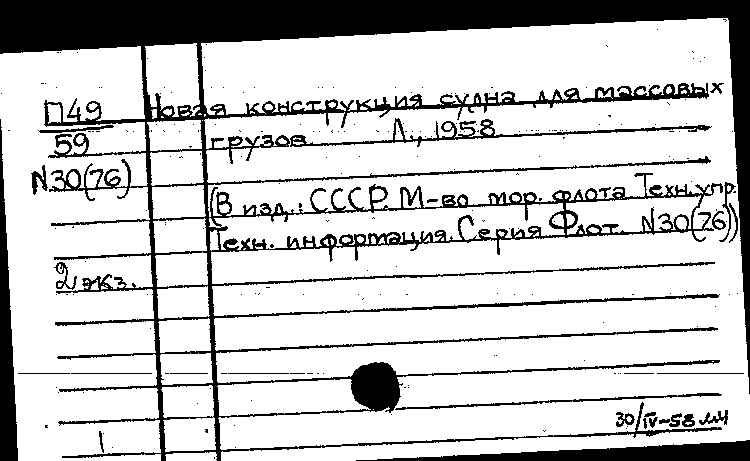 П49 Новая конструкция судна для массовых
59 грузов. Л., 1958
N30(76)
(В изд.: СССР. М-во мор. флота Техн. упр.
Техн. информация. Серия Флот. N30(76))
2 экз.
30/IV-58